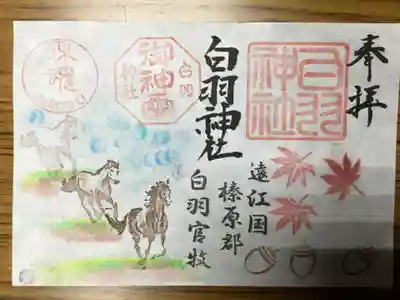 奉拝
白羽神社
白羽神社
遠江国
榛原郡
白羽官牧
白羽
神社